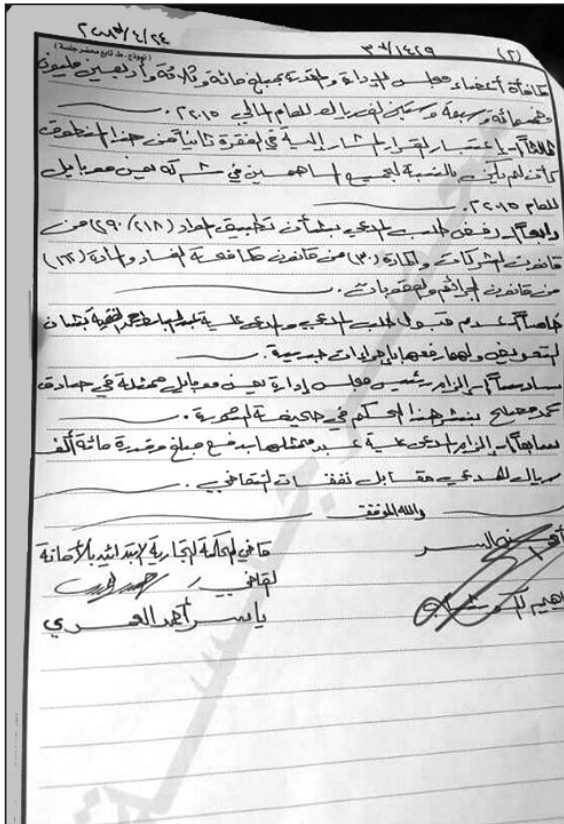 ٢٠٢٣/٤/٢٤
(نموذج ط تابع محضر جلسة)
(٢)
مكافأة أعضاء مجلس الإدارة والمقدرة بمبلغ مائة وثلاثة وأربعين مليون
وخمسمائة وسبعة وستين ألف ريال للعام المالي ٢٠١٥م.
ثالثاً:- باعتبار القرار المشار إليه في الفقرة ثانياً من هذا المنطوق
كأن لم يكن بالنسبة لجميع المساهمين في شركة يمن موبايل
للعام ٢٠١٥م.
رابعاً:- رفض طلب المدعي بشأن تطبيق المواد (٢٩٠/٢١٨) من
قانون الشركات والمادة (٣٠) من قانون مكافحة الفساد والمادة (١٦٢)
من قانون الجرائم والعقوبات.
خامساً:- عدم قبول طلب المدعي والمدعى عليه عبدالباسط الفقيه بشأن
التعويض ولهما رفعها بإجراءات جديدة.
سادساً:- إلزام رئيس مجلس إدارة يمن موبايل ممثلة في صادق
محمد مصلح بنشر هذا الحكم في صحيفة الثورة.
سابعاً:- إلزام المدعى عليه عبر ممثلها بدفع مبلغ وقدره مائة ألف
ريال للمدعي مقابل نفقات التقاضي.
والله الموفق
أمين السر
قاضي المحكمة التجارية الابتدائية بالأمانة
القاضي/
ياسر أحمد العمدي